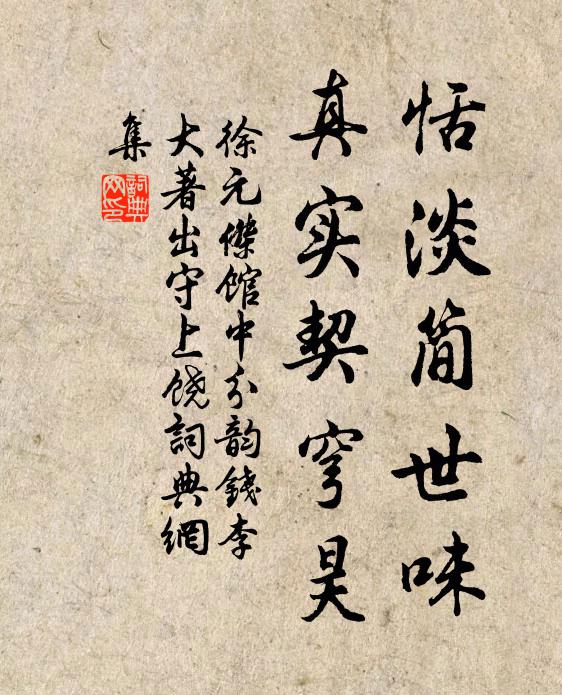 恬淡简世味
真实契穹昊
徐元傑馆中分韵錢李
大著出守上饶詞典網
集
詞典
网印